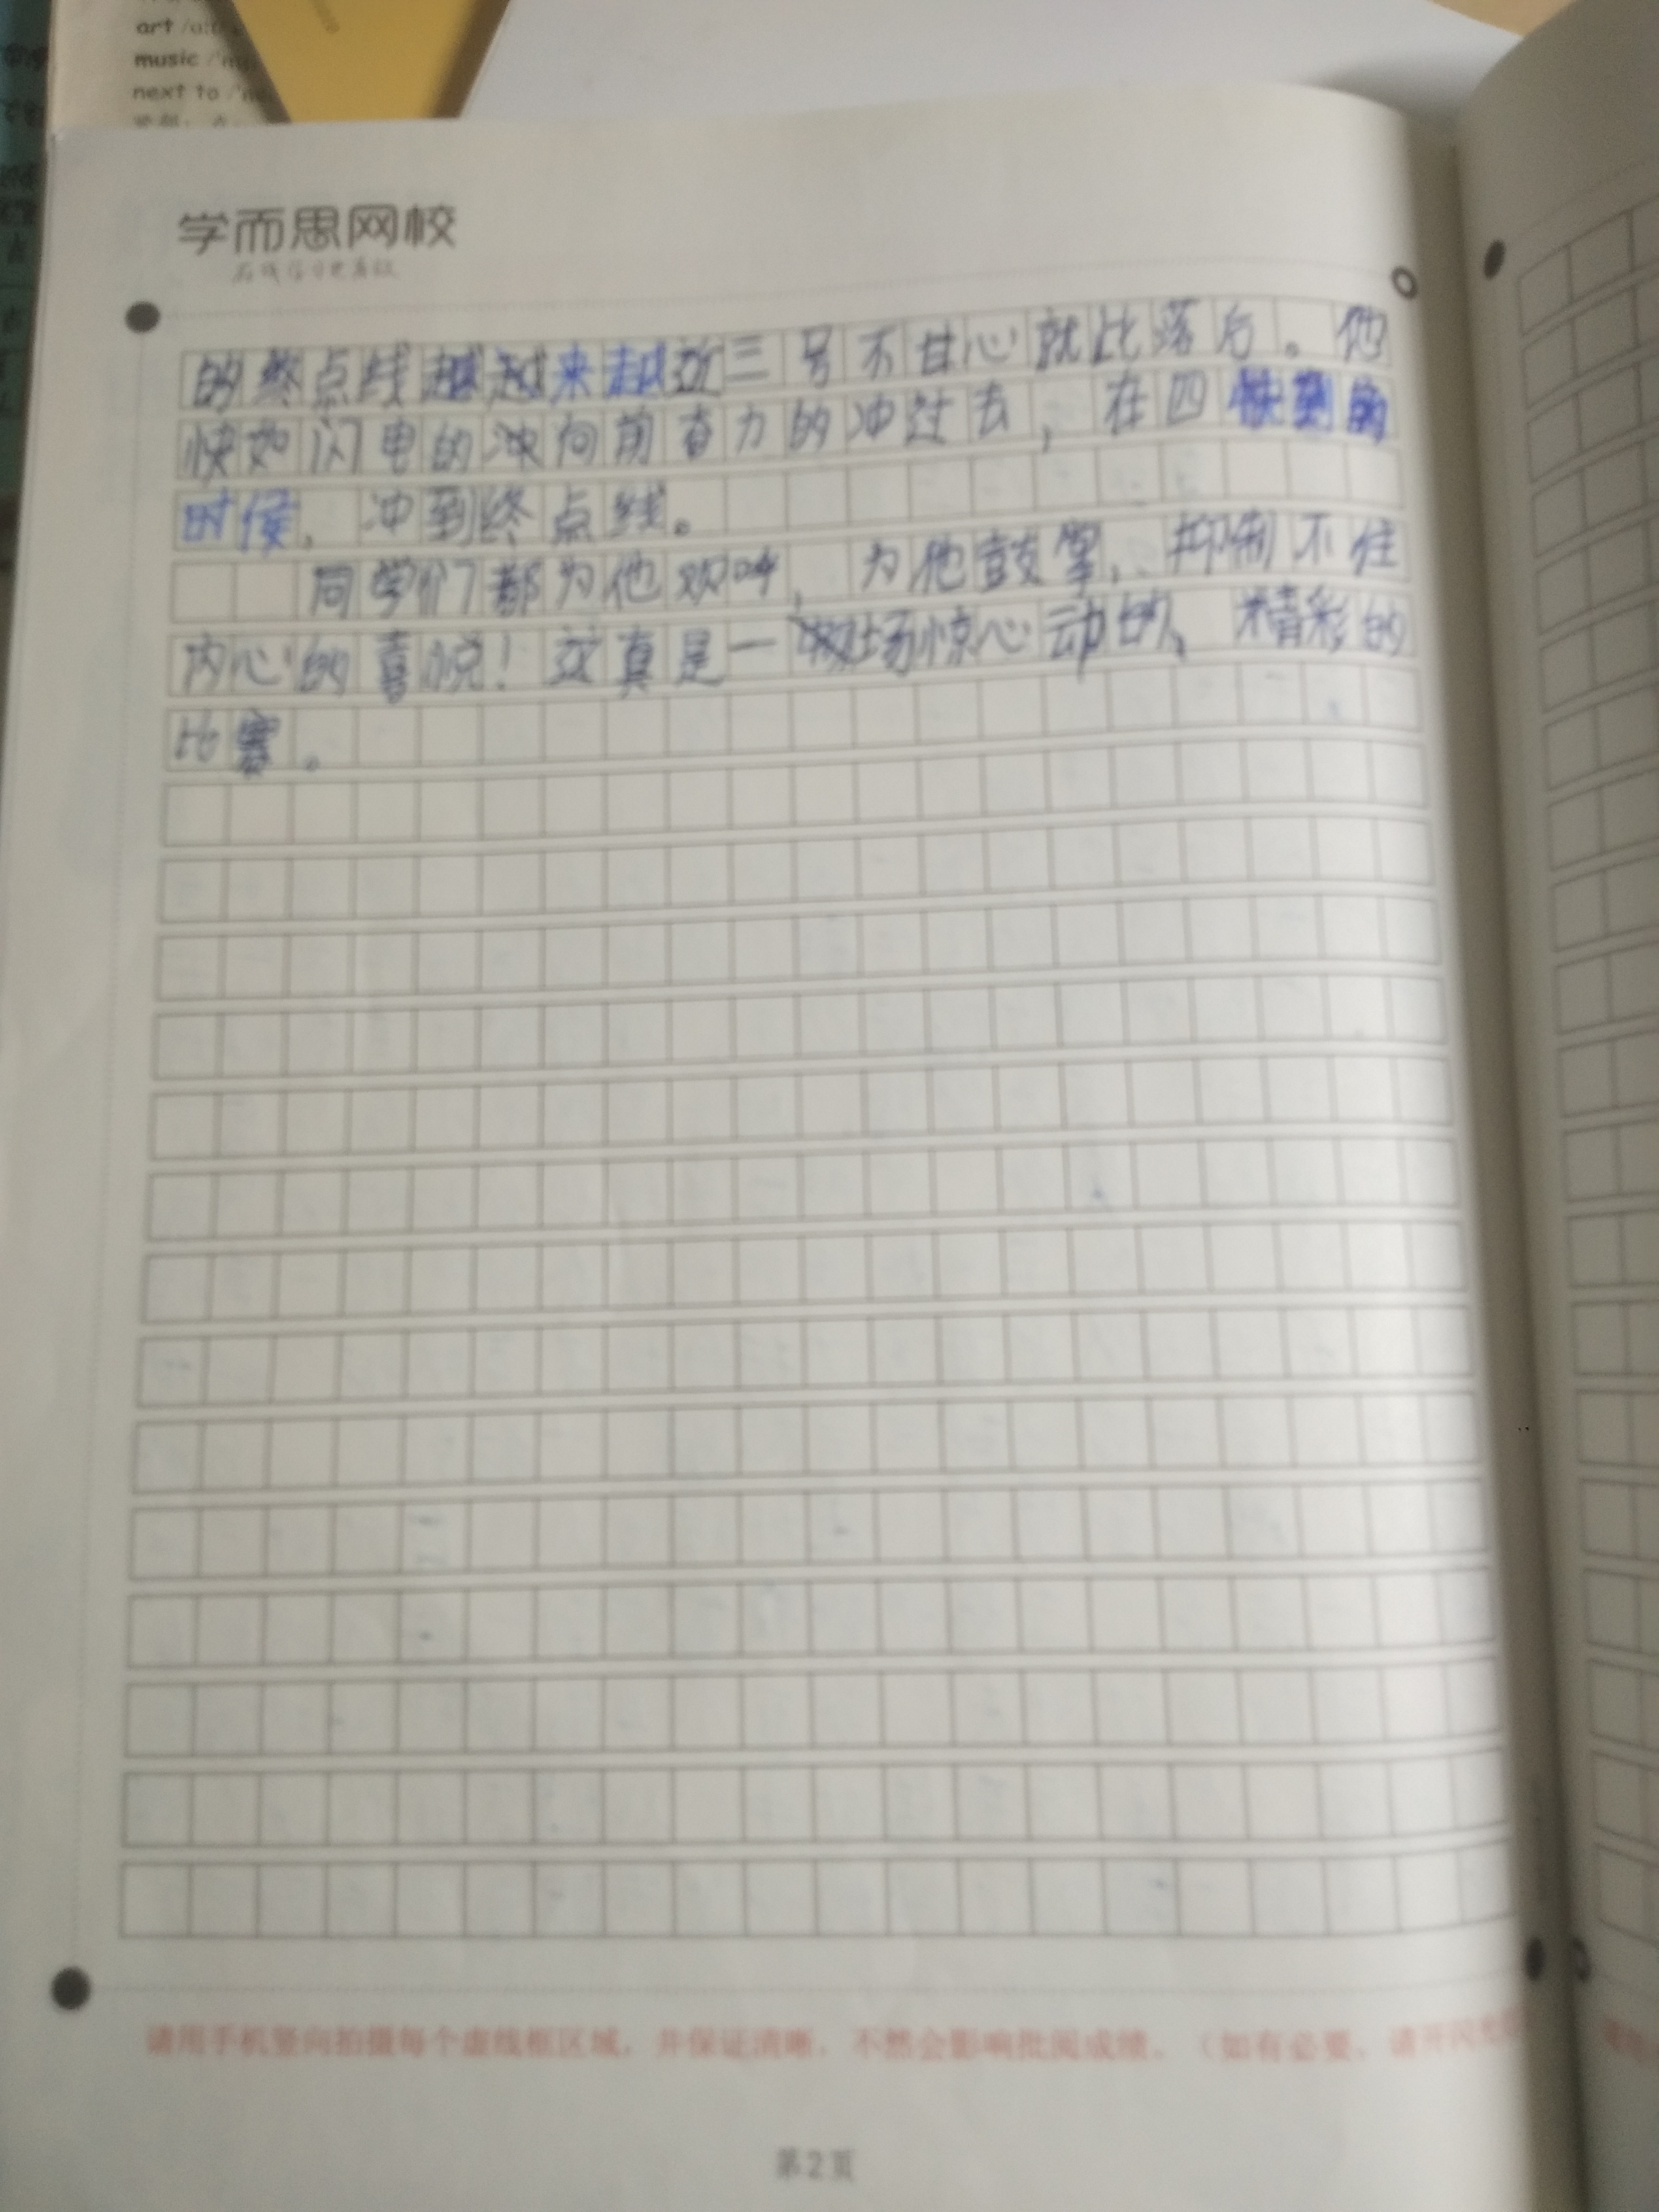 art /ɑː
music /
next to /
学而思网校
在线学习更有效
的终点线越越来越近三号不甘心就比落后。他
快如闪电的冲向前奋力的冲过去，在四快到的
时候，冲到终点线。
同学们都为他欢呼，为他鼓掌，抑制不住
内心的喜悦！这真是一场惊心动的、精彩的
比赛。
请用手机竖向拍摄每个虚线框区域，并保证清晰，不然会影响批阅成绩。（如有必要，请开闪光
第2页